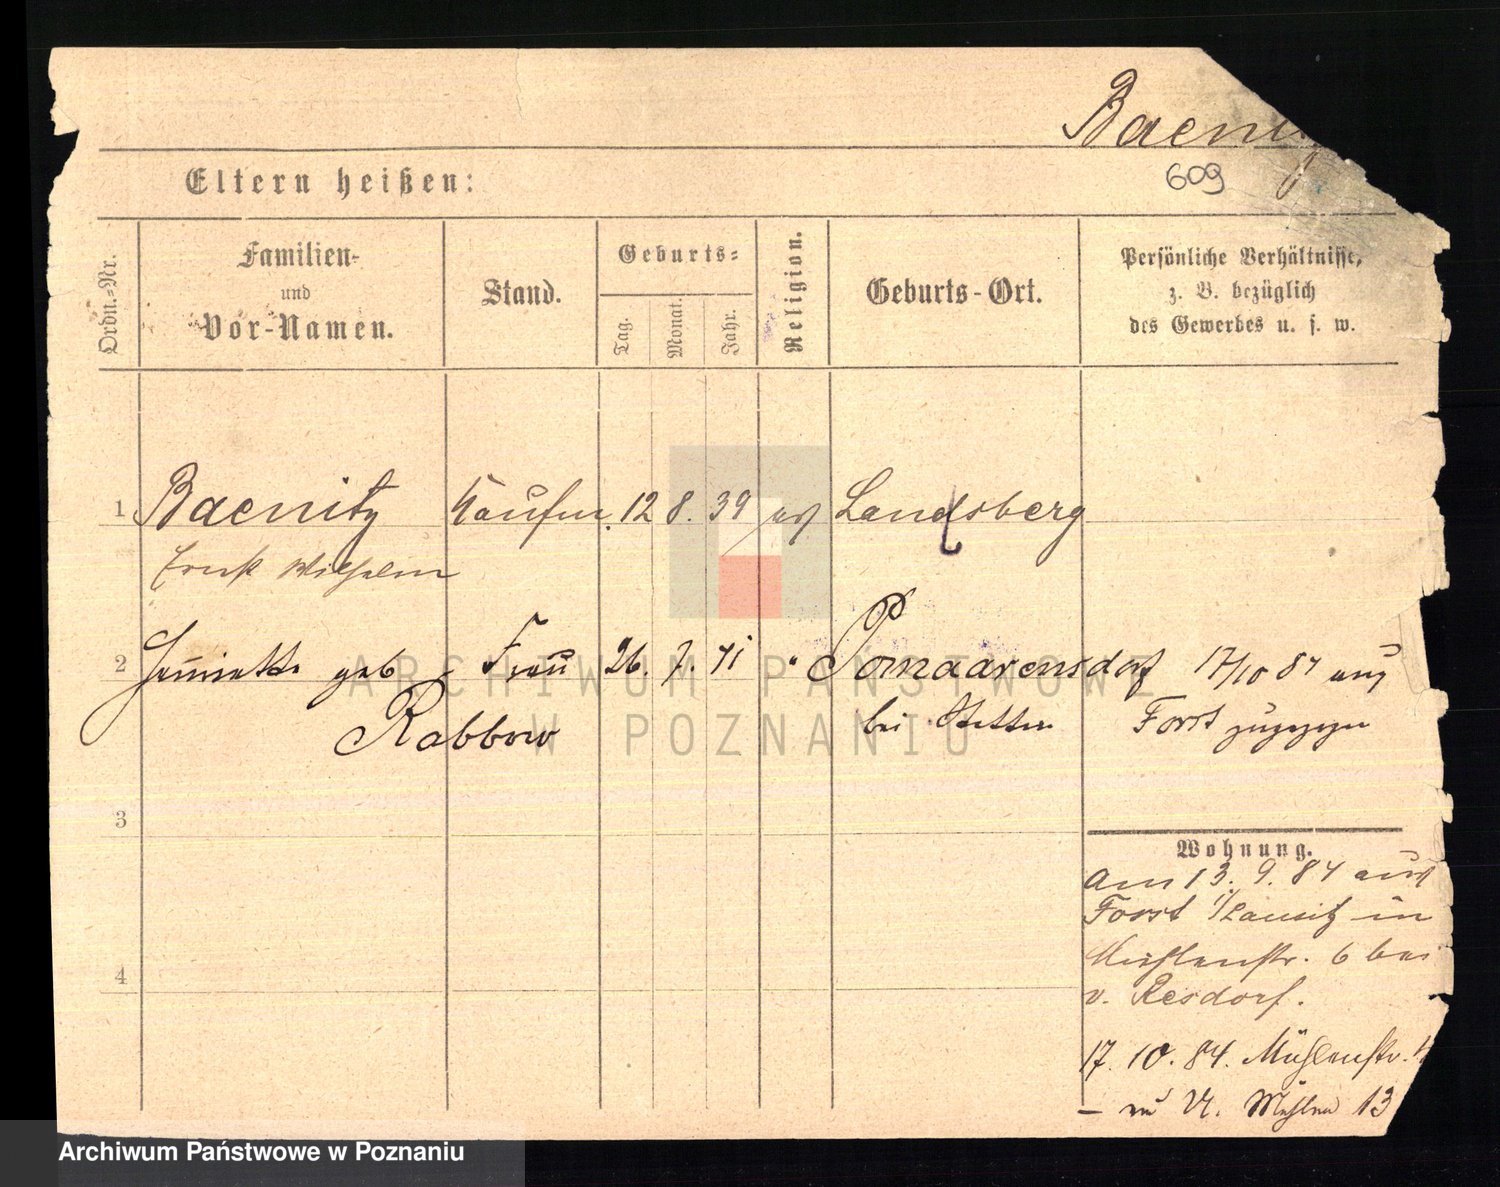 Baenitz
609
Eltern heißen:
Ordn.=Nr.
Familien-
und
Vor-Namen.
Stand.
Geburts=
Tag.
Monat.
Jahr.
Religion.
Geburts-Ort.
Persönliche Verhältnisse,
z. B. bezüglich
des Gewerbes u. s. w.
1 Baenitz Kaufm. 12 8. 39 Landsberg
Ernst Wilhelm
2 geb. Frau 26. 7. 41 " 17/10 84 aus
Rabbow bei Stettin Forst zugezogen
3
Wohnung.
Am 13. 9. 84 aus
Forst i/Lausitz in
Mühlenstr. 6 bei
v. Resdorf.
4
17. 10. 84. Mühlenstr.
13
ARCHIWUM PAŃSTWOWE
W POZNANIU
Archiwum Państwowe w Poznaniu